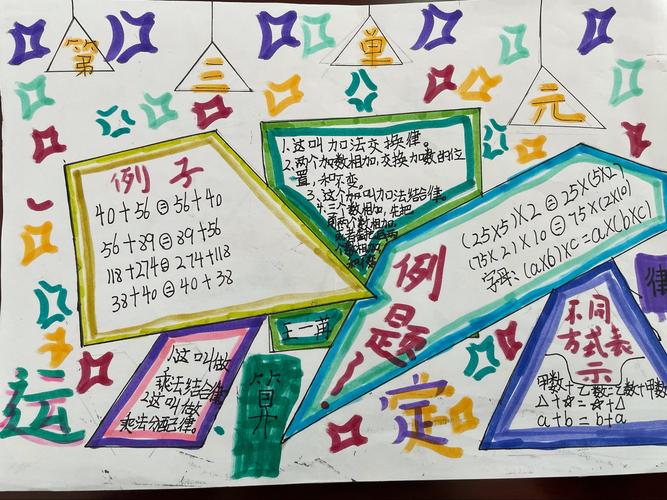 第
三
单
元
例子
40+56=56+40
56+89=89+56
118+274=274+118
38+40=40+38
1.这叫加法交换律。
2.两个加数相加,交换加数的位
置,和不变。
3.这个叫叫加法结合律。
4.三个数相加,先把
例题!
(25×5)×2=25×(5×2)
(75×2)×10=75×(2×10)
字母:(a×b)×c=a×(b×c)
1.这叫做
乘法结合律
2.这叫做
乘法分配律。
王一萌
不同
方式表
示
甲数+乙数=乙数+甲数
△+☆=☆+△
a+b=b+a
运
算
定
律